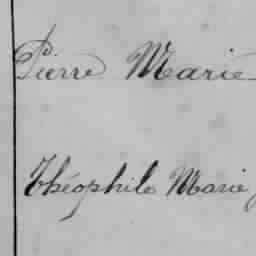 Pierre Marie
Théophile Marie